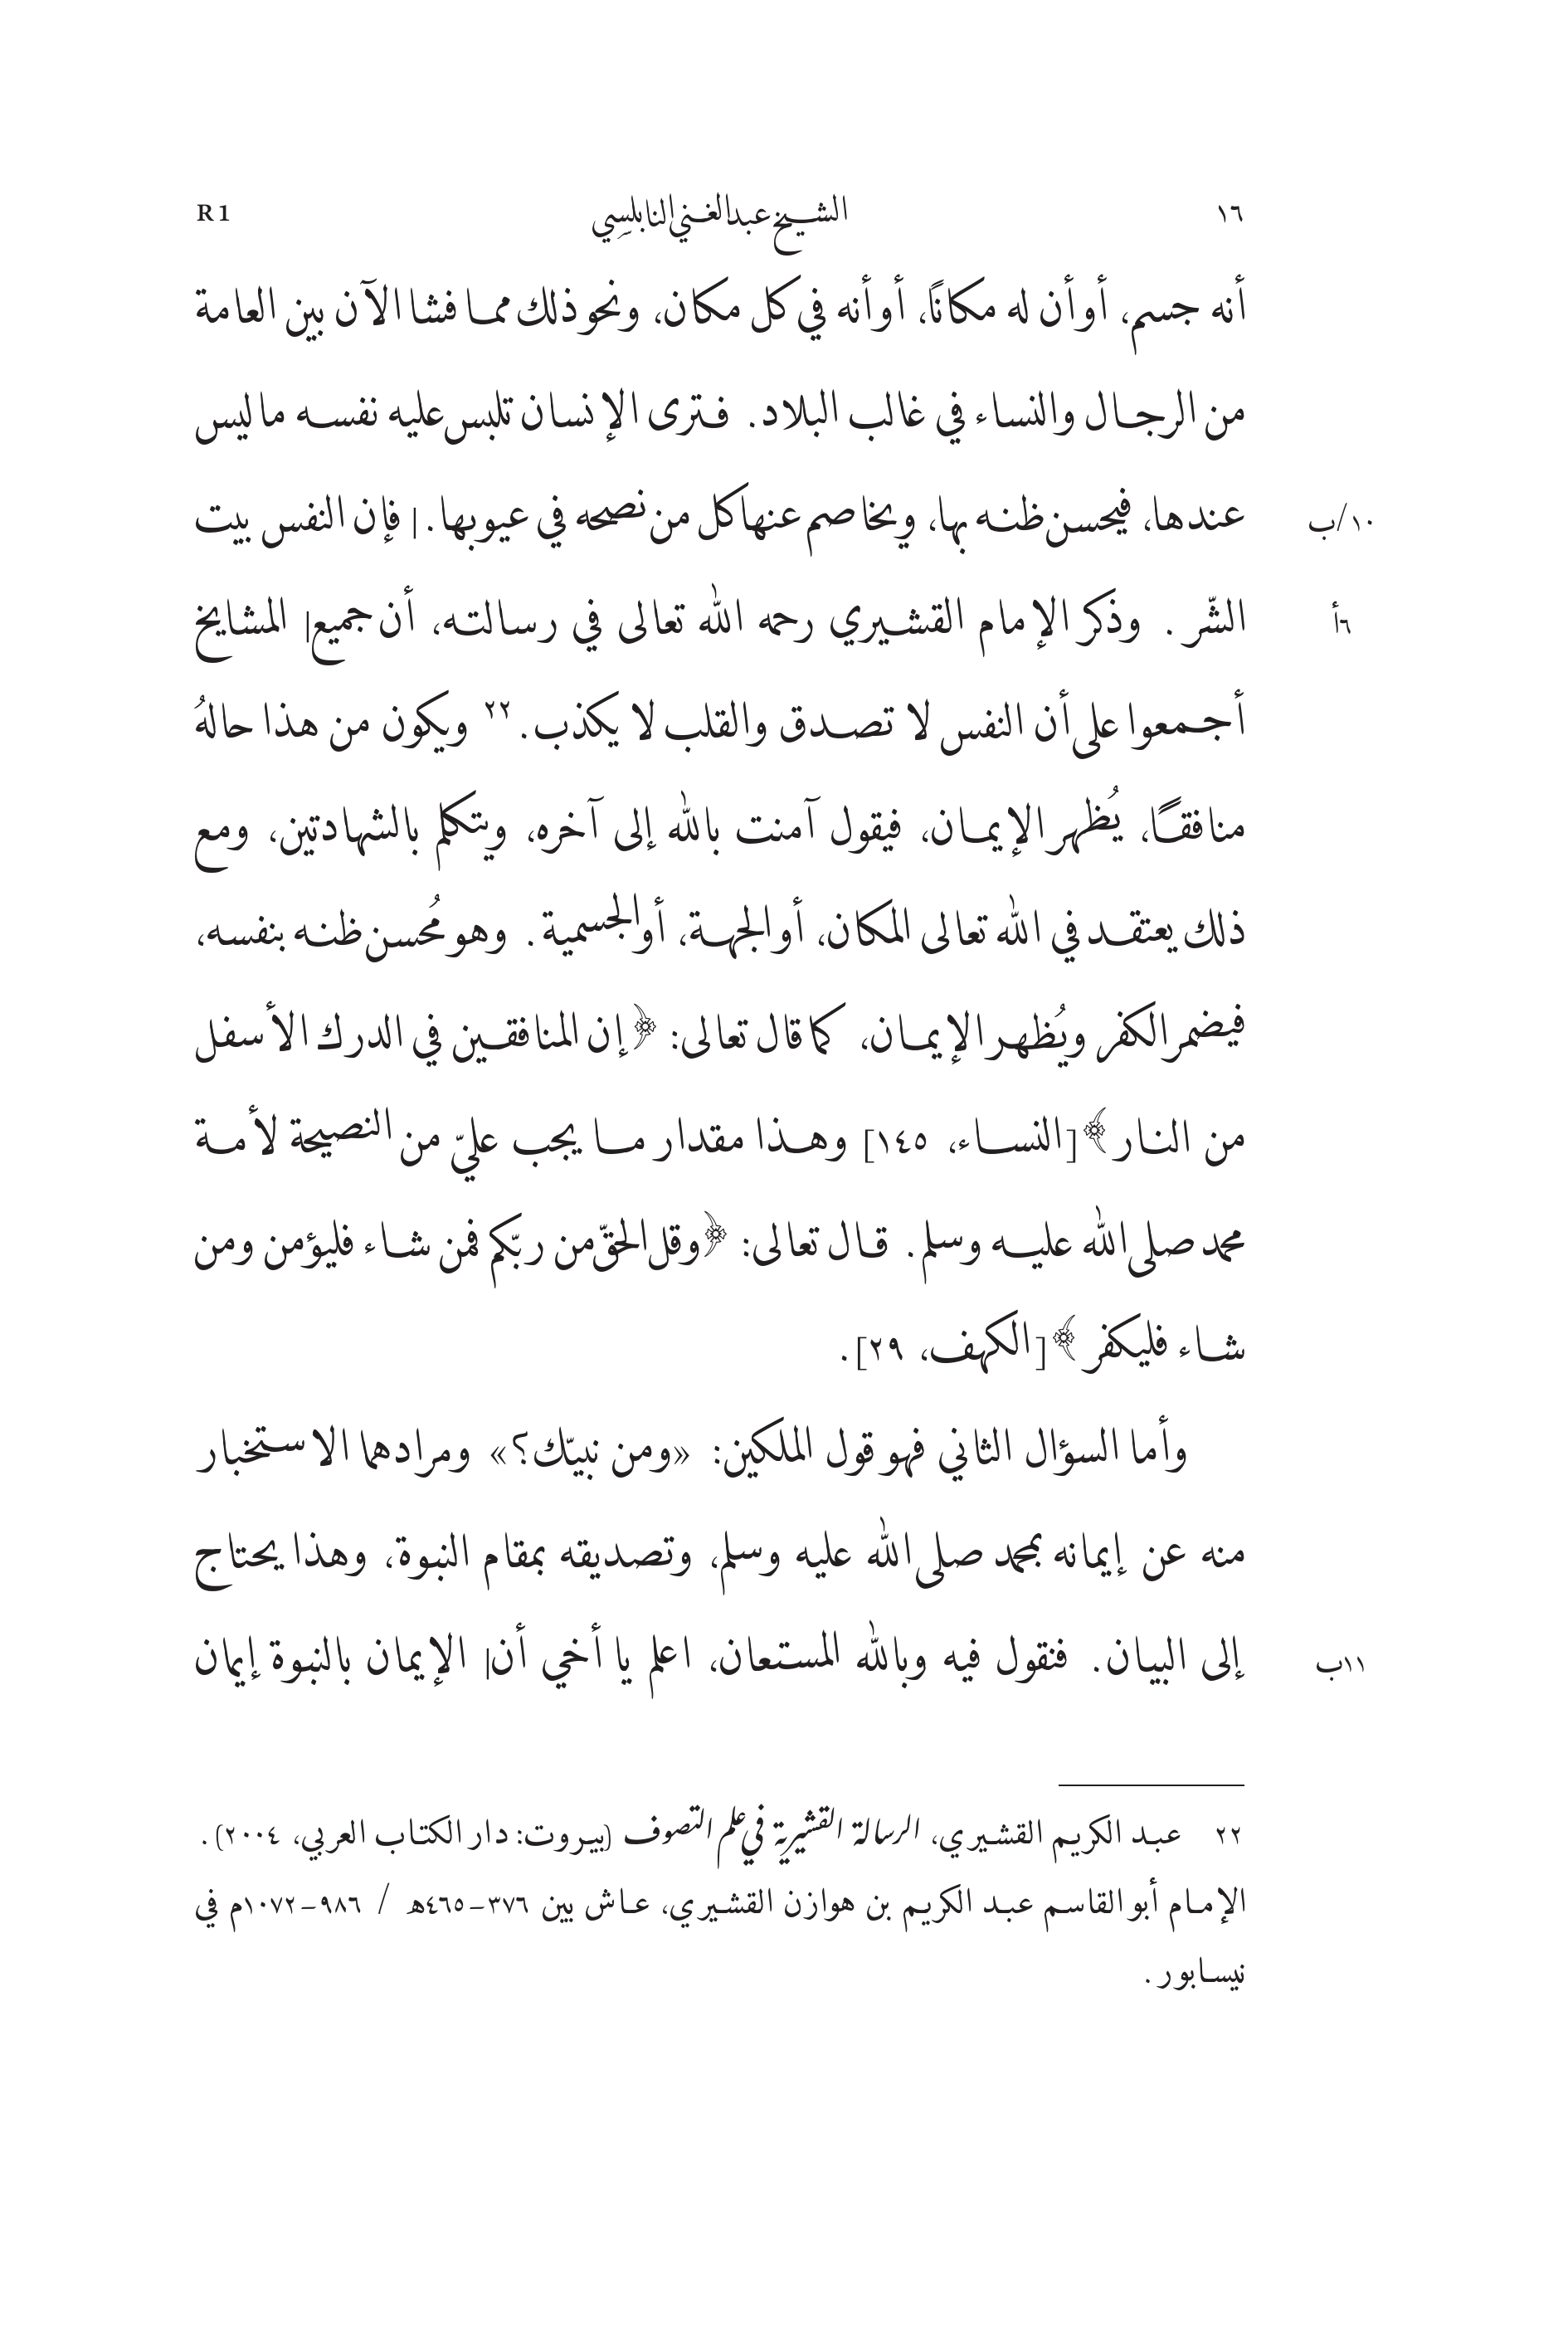 ١٦ الشيخ عبد الغني النابلسي R 1
أنه جسم، أو أن له مكانًا، أو أنه في كل مكان، ونحو ذلك مما فشا الآن بين العامة
من الرجال والنساء في غالب البلاد. فترى الإنسان تلبس عليه نفسه ما ليس
١٠/ب عندها، فيحسن ظنه بها، ويخاصم عنها كل من نصحه في عيوبها.| فإن النفس بيت
٦أ الشّر. وذكر الإمام القشيري رحمه الله تعالى في رسالته، أن جميع| المشايخ
أجمعوا على أن النفس لا تصدق والقلب لا يكذب.٢٢ ويكون من هذا حالهُ
منافقًا، يُظهر الإيمان، فيقول آمنت بالله إلى آخره، ويتكلم بالشهادتين، ومع
ذلك يعتقد في الله تعالى المكان، أو الجهة، أو الجسمية. وهو مُحسن ظنه بنفسه،
فيضمر الكفر ويُظهر الإيمان، كما قال تعالى: ﴿إن المنافقين في الدرك الأسفل
من النار﴾ [النساء، ١٤٥] وهذا مقدار ما يجب عليّ من النصيحة لأمة
محمد صلى الله عليه وسلم. قال تعالى: ﴿وقل الحقّ من ربّكم فمن شاء فليؤمن ومن
شاء فليكفر﴾ [الكهف، ٢٩].
وأما السؤال الثاني فهو قول الملكين: «ومن نبيّك؟» ومرادهما الاستخبار
منه عن إيمانه بمحمد صلى الله عليه وسلم، وتصديقه بمقام النبوة، وهذا يحتاج
١١ب إلى البيان. فنقول فيه وبالله المستعان، اعلم يا أخي أن| الإيمان بالنبوة إيمان
٢٢ عبد الكريم القشيري، الرسالة القشيرية في علم التصوف (بيروت: دار الكتاب العربي، ٢٠٠٤).
الإمام أبو القاسم عبد الكريم بن هوازن القشيري، عاش بين ٣٧٦–٤٦٥هـ / ٩٨٦–١٠٧٢م في
نيسابور.